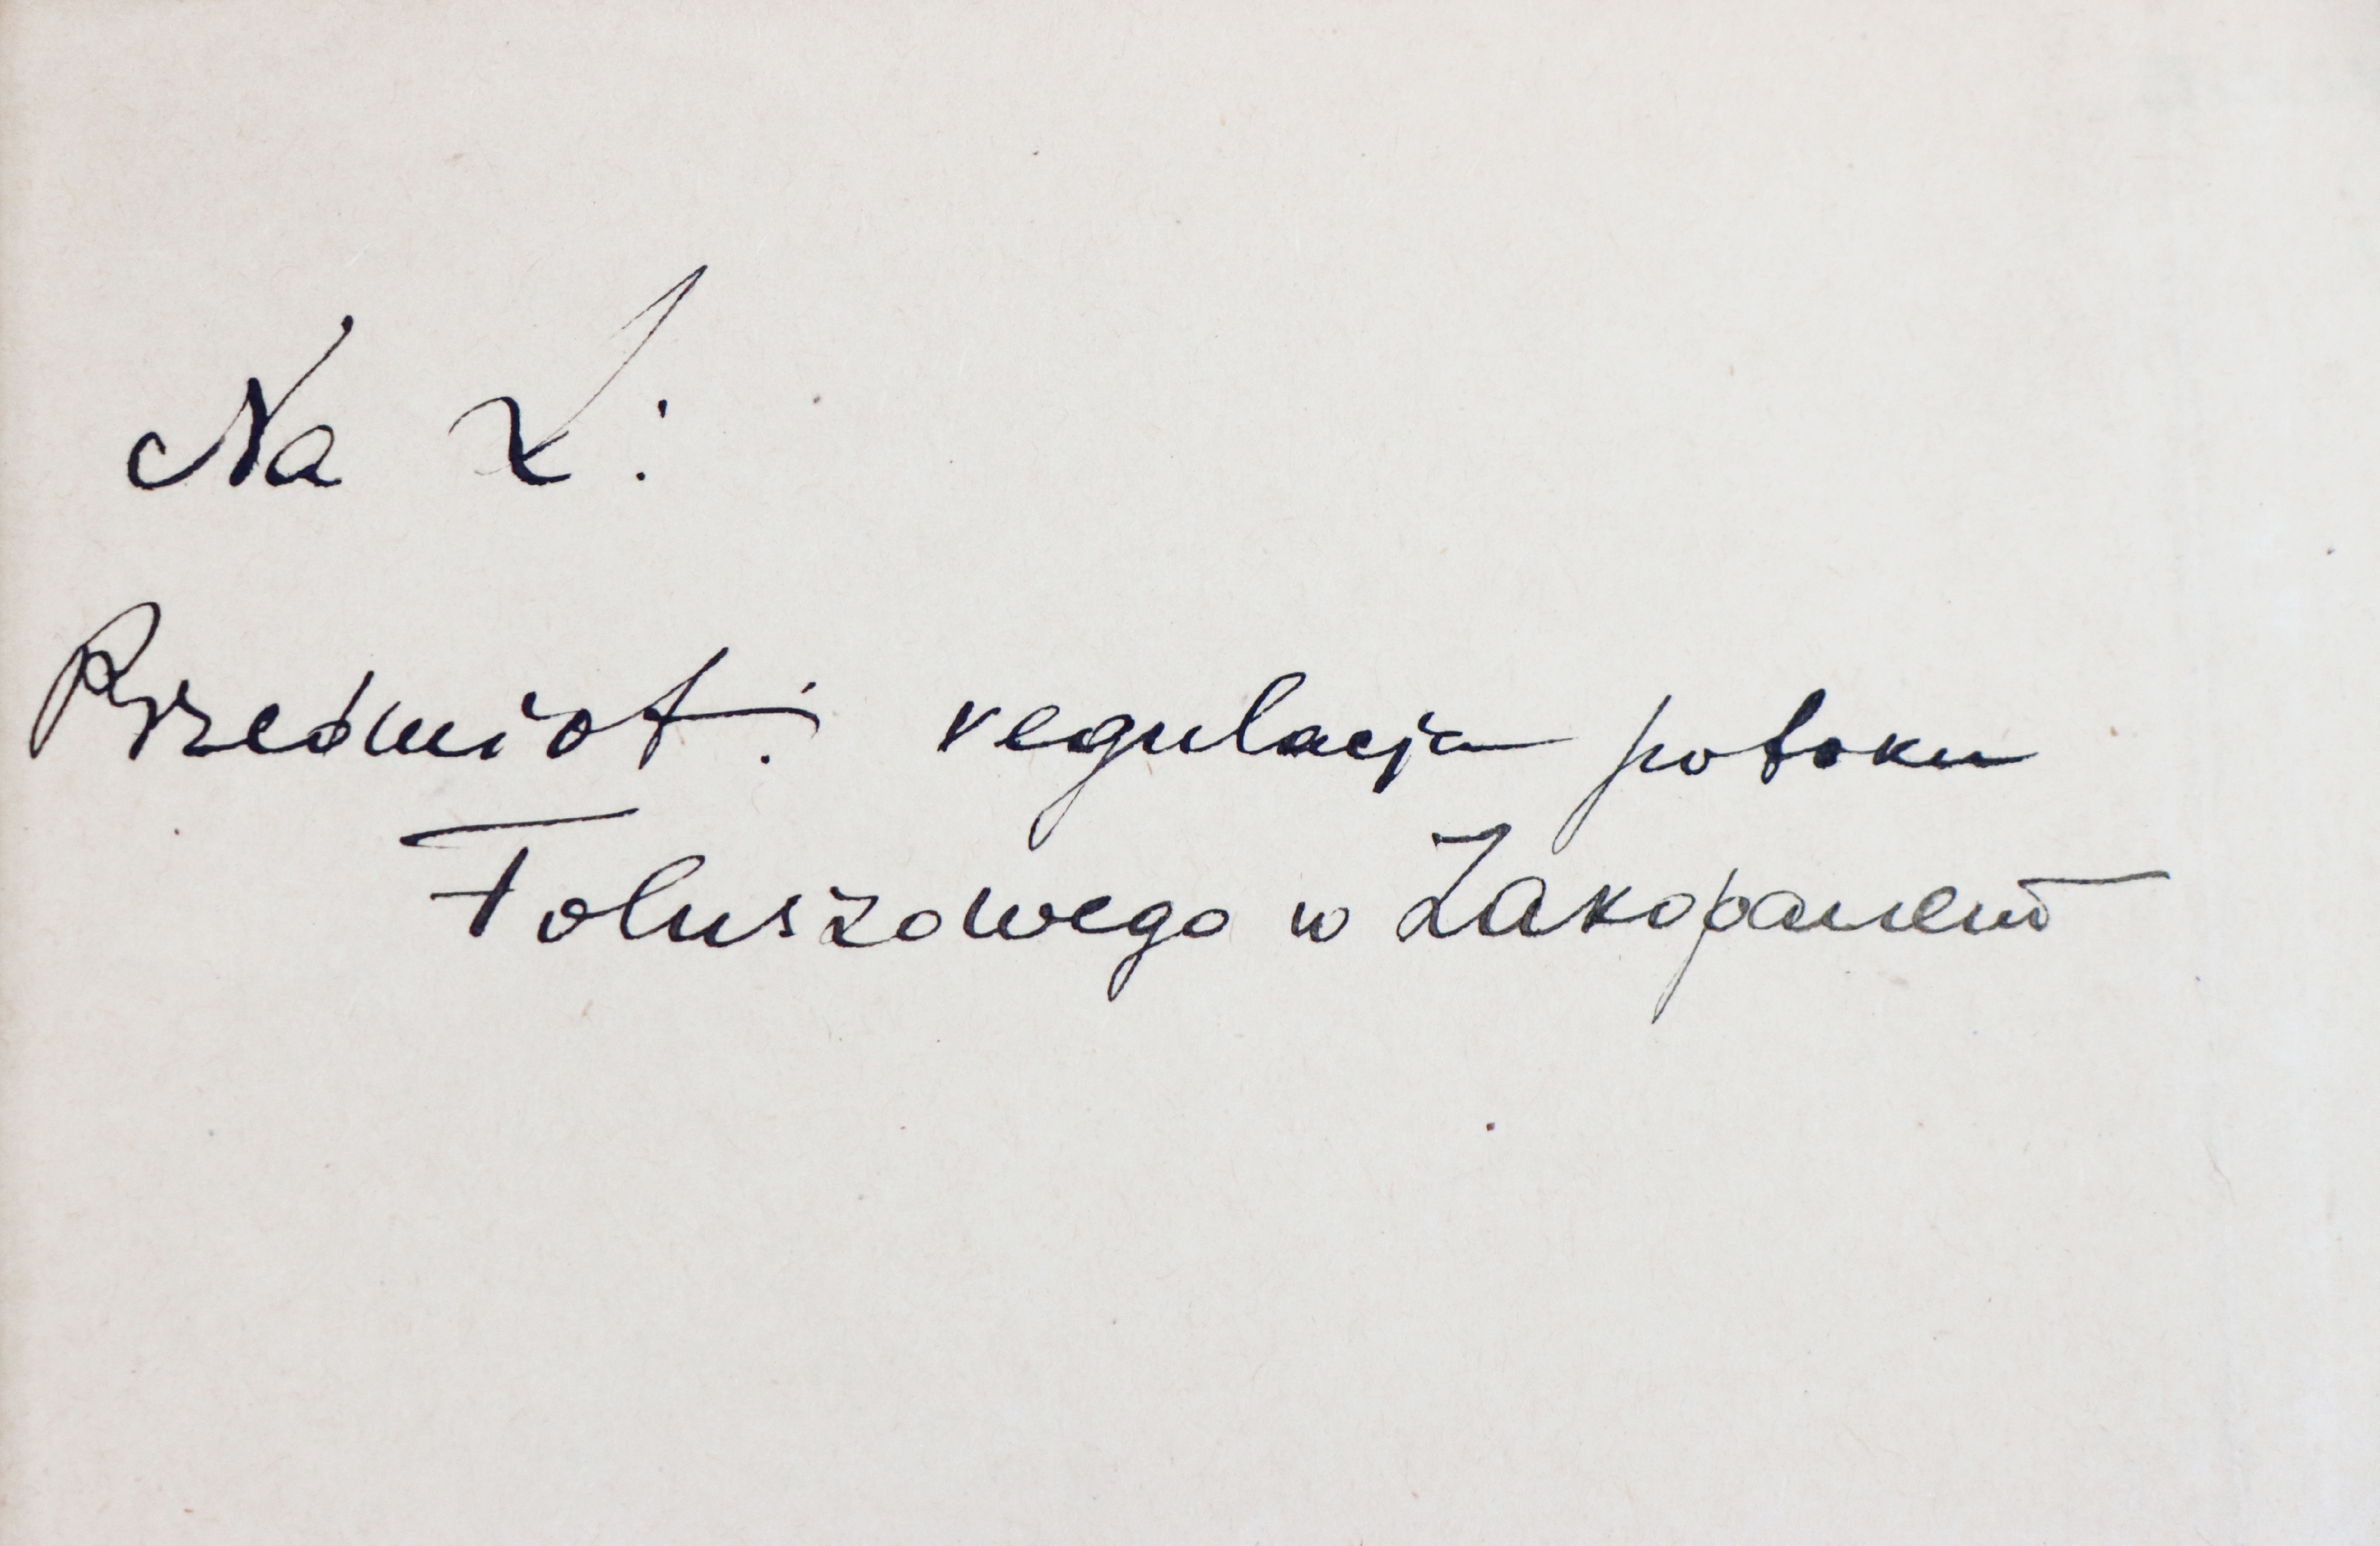 Na L:
Przedmiot: regulacja potoku
Foluszowego w Zakopanem